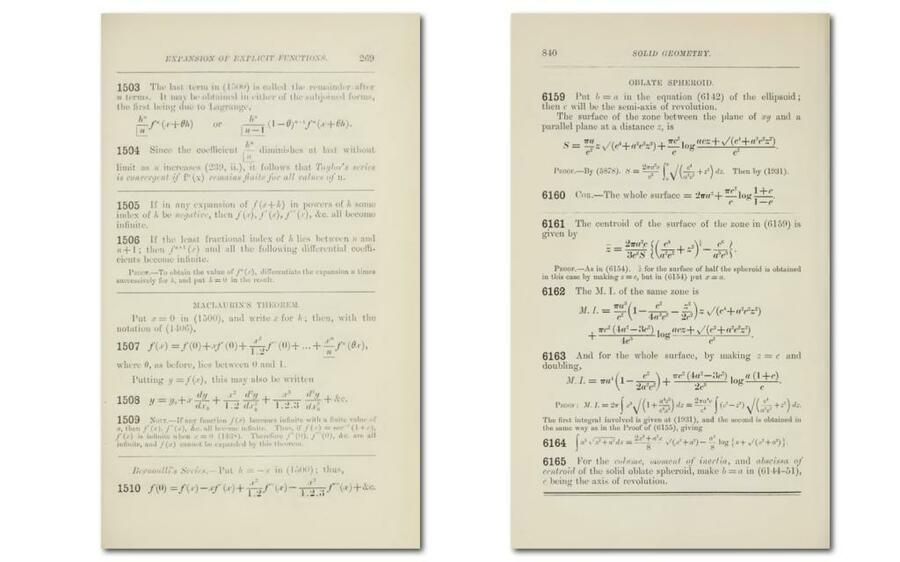 EXPANSION OF EXPLICIT FUNCTIONS. 269
1503 The last term in (1500) is called the remainder after
n terms. It may be obtained in either of the subjoined forms,
the first being due to Lagrange,
hⁿ/|n fⁿ(x+θh) or hⁿ/|n−1 (1−θ)ⁿ⁻¹fⁿ(x+θh).
1504 Since the coefficient hⁿ/|n diminishes at last without
limit as n increases (239, ii.), it follows that Taylor's series
is convergent if fⁿ(x) remains finite for all values of n.
1505 If in any expansion of f(x+h) in powers of h some
index of h be negative, then f(x), f′(x), f″(x), &c. all become
infinite.
1506 If the least fractional index of h lies between n and
n+1; then fⁿ⁺¹(x) and all the following differential coeffi-
cients become infinite.
PROOF.—To obtain the value of fⁿ(x), differentiate the expansion n times
successively for h, and put h = 0 in the result.
MACLAURIN'S THEOREM.
Put x = 0 in (1500), and write x for h; then, with the
notation of (1406),
1507 f(x) = f(0)+xf′(0)+ x²/1.2 f″(0)+ ... + xⁿ/|n fⁿ(θx),
where θ, as before, lies between 0 and 1.
Putting y = f(x), this may also be written
1508 y = y₀+x dy/dx₀ + x²/1.2 d²y/dx₀² + x³/1.2.3 d³y/dx₀³ + &c.
1509 NOTE.—If any function f(x) becomes infinite with a finite value of
x, then f′(x), f″(x), &c. all become infinite. Thus, if f(x) = sec⁻¹(1+x),
f′(x) is infinite when x = 0 Therefore f″(0), f‴(0), &c. are all
infinite, and f(x) cannot be expanded by this theorem.
Bernoulli's Series.—Put h = −x in (1500); thus,
1510 f(0) = f(x)−xf′(x)+ x²/1.2 f″(x)− x³/1.2.3 f‴(x)+&c.
840 SOLID GEOMETRY.
OBLATE SPHEROID.
6159 Put b = a in the equation (6142) of the ellipsoid;
then c will be the semi-axis of revolution.
The surface of the zone between the plane of xy and a
parallel plane at a distance z, is
S = πa/c² z √(c⁴+a²e²z²)+ πc²/e log aez+√(c⁴+a²e²z²)/c².
PROOF.—By (5878). S = 2πa²e/c² ∫₀ᶻ √(c⁴/a²e² + z²) dz. Then by (1931).
6160 COR.—The whole surface = 2πa²+ πc²/e log 1+e/1−e.
6161 The centroid of the surface of the zone in (6159) is
given by
z̄ = 2πa²e/3c²S {(c⁴/a²e² + z²)^3/2 − c⁶/a³e³}.
PROOF.—As in (6154). z̄ for the surface of half the spheroid is obtained
in this case by making z = c, but in (6154) put x = a.
6162 The M. I. of the same zone is
M. I. = πa³/c² (1− c²/4a²e² − z²/2c²) z √(c⁴+a²e²z²)
+ πc²(4a²−3c²)/4e³ log aez+√(c⁴+a²e²z²)/c².
6163 And for the whole surface, by making z = c and
doubling,
M. I. = πa⁴(1− c²/2a²e²)+ πc²(4a²−3c²)/2e³ log a(1+e)/c.
in the same way as in the Proof of (6155), giving
The first integral involved is given at (1931), and the second is obtained in
6165 For the volume, moment of inertia, and abscissa of
centroid of the solid oblate spheroid, make b = a in (6144–51),
c being the axis of revolution.